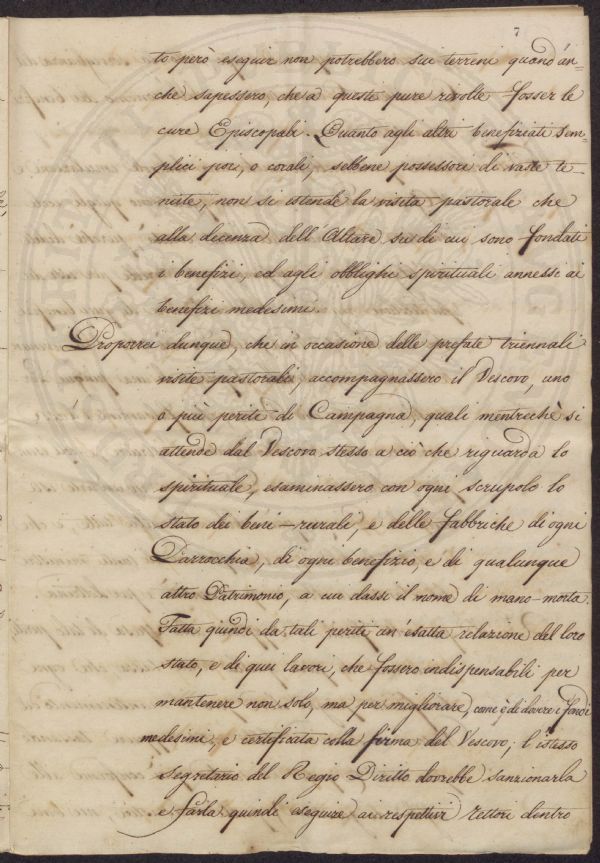 7
to però eseguir non potrebbero sui terreni quand'an=
che sapessero, che a queste pure rivolte fosser le
cure Episcopali. Quanto agli altri benefiziati sem=
plici poi, o corali, sebbene possessori di vaste te=
nute, non si estende la visita pastorale che
alla decenza dell'Altare su di cui sono fondati
i benefizi, ed agli obblighi spirituali annessi ai
benefizi medesimi.
Proporrei dunque, che in occasione delle prefate triennali
visite pastorali, accompagnassero il Vescovo, uno
o più perite di Campagna, quali mentrechè si
attende dal Vescovo stesso a ciò che riguarda lo
spirituale, esaminassero con ogni scrupolo lo
stato dei beni-rurali, e delle fabbriche di ogni
Parrocchia, di ogni benefizio, e di qualunque
altro Patrimonio, a cui dassi il nome di mano-morta.
Fatta quindi da tali periti un'esatta relazione del loro
stato, e di quei lavori, che fossero indispensabili per
mantenere non solo, ma per migliorare, come è di dovere i fondi
medesimi, e certificata colla firma del Vescovo; l'istesso
Segretario del Regio Diritto dovrebbe sanzionarla
e farla quindi eseguire ai respettivi Rettori dentro